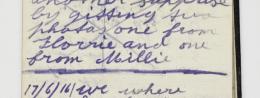 another surprise
by gitting two
photos one from
Florrie and one
from Millie
17/6/16/ we where